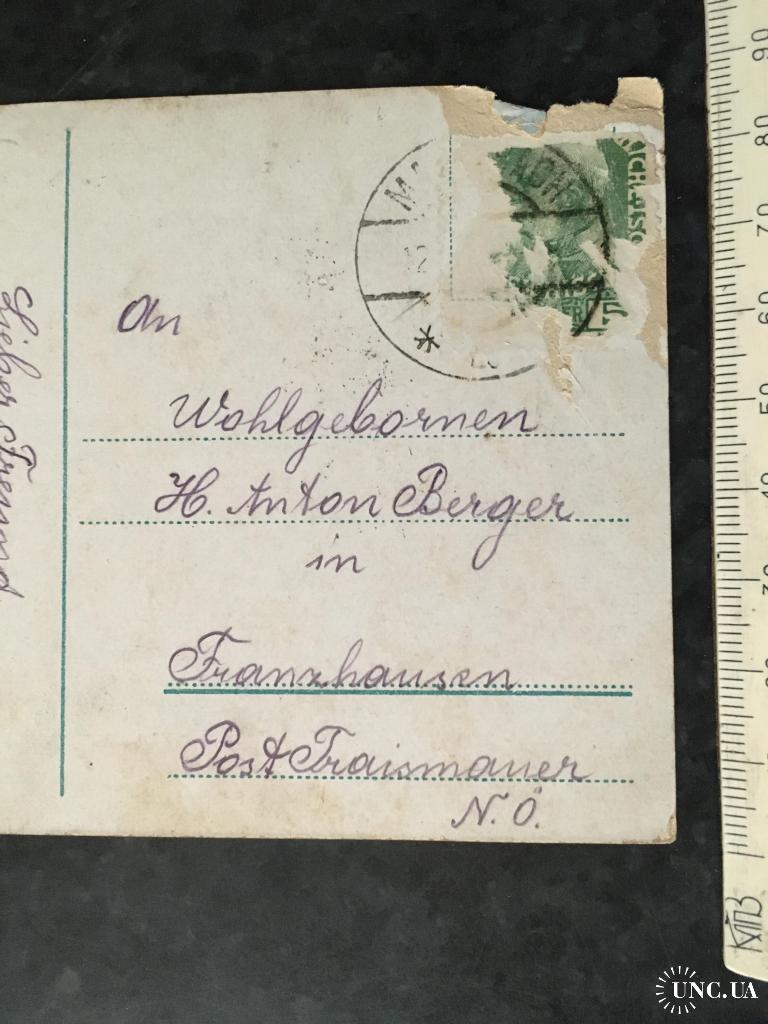 An
Wohlgebornen
H. Anton Berger
in
Franzhausen
Post Traismauer
N. Ö.
Lieber Freund
90
80
70
60
50
40
30
КПЗ
UNC.UA